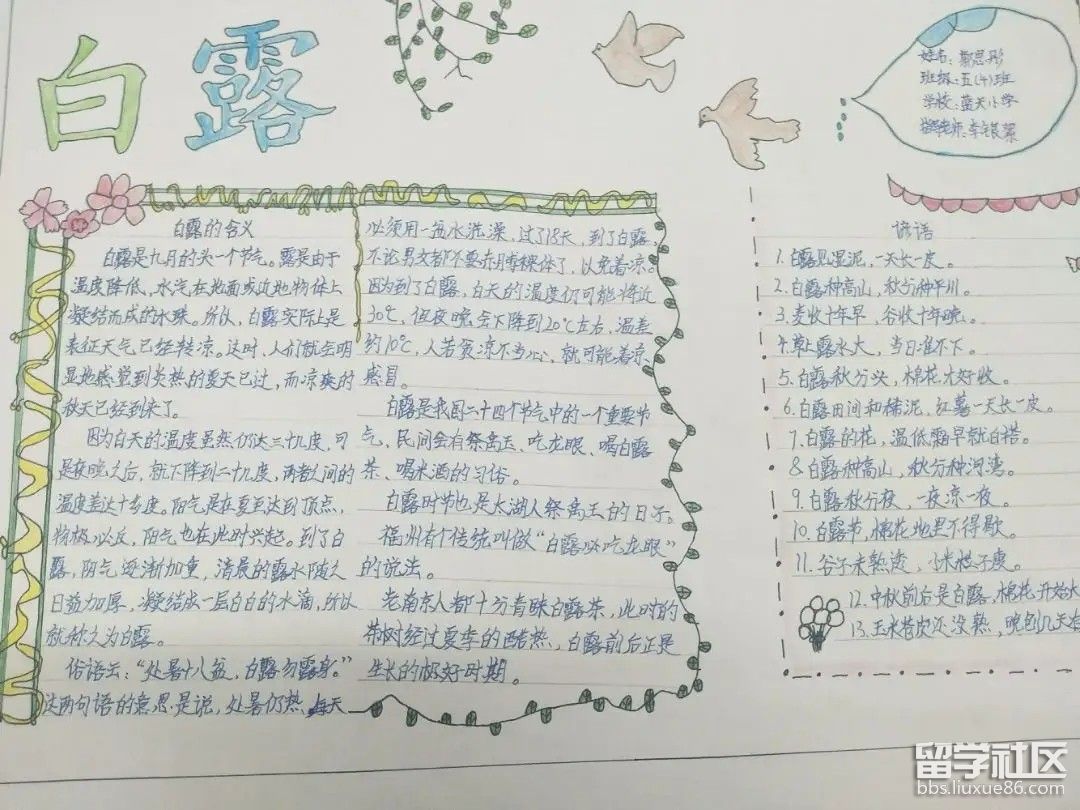 白露
姓名：靳思彤
班级：五(4)班
学校：蓝天小学
指导老师：李银
白露的含义
白露是九月的头一个节气。露是由于
温度降低，水汽在地面或近地物体上
凝结而成的水珠。所以，白露实际上是
表征天气已经转凉。这时，人们就会明
显地感觉到炎热的夏天已过，而凉爽的
秋天已经到来了。
因为白天的温度虽然仍达三十几度，可
是夜晚之后，就下降到二十几度，两者之间的
温度差达十多度。阳气是在夏至达到顶点，
物极必反，阴气也在此时兴起。到了白
露，阴气逐渐加重，清晨的露水随之
日益加厚，凝结成一层白白的水滴，所以
就称之为白露。
俗语云：“处暑十八盆，白露勿露身。”
这两句话的意思是说，处暑仍热，每天
必须用一盆水洗澡，过了18天，到了白露，
不论男女都不要赤裸体了，以免着凉。
因为到了白露，白天的温度仍可能将近
30℃，但夜晚会下降到20℃左右，温差
约10℃，人若贪凉不当心，就可能着凉、
感冒。
白露是我国二十四个节气中的一个重要节
气、民间会有祭禹王、吃龙眼、喝白露
茶、喝米酒的习俗。
白露时节也是太湖人祭禹王的日子。
福州有个传统叫做“白露必吃龙眼”
的说法。
老南京人都十分青睐白露茶，此时的
茶树经过夏季的酷热，白露前后正是
生长的极好时期。
谚语
1.白露见湿泥，一天长一皮。
2.白露种高山，秋分种平川。
3.麦收十年早，谷收十年晚。
4.草上露水大，当日准不下。
5.白露秋分头，棉花才好收。
6.白露田间和稀泥，红薯一天长一皮。
7.白露的花，温低霜早就白搭。
8.白露种高山，秋分种河湾。
9.白露秋分夜，一夜凉一夜。
10.白露节，棉花地里不得歇。
11.谷子未熟透，小米
12.中秋前后是白露，棉花开始大
13.玉米苞皮还没熟，晚刨几天
留学社区
bbs.liuxue86.com